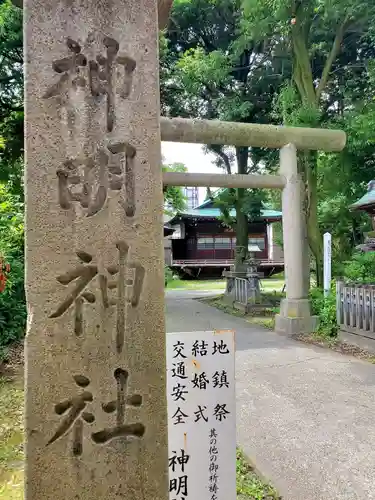 神明神社
地鎮祭
結婚式
交通安全
其の他の御祈祷を
神明